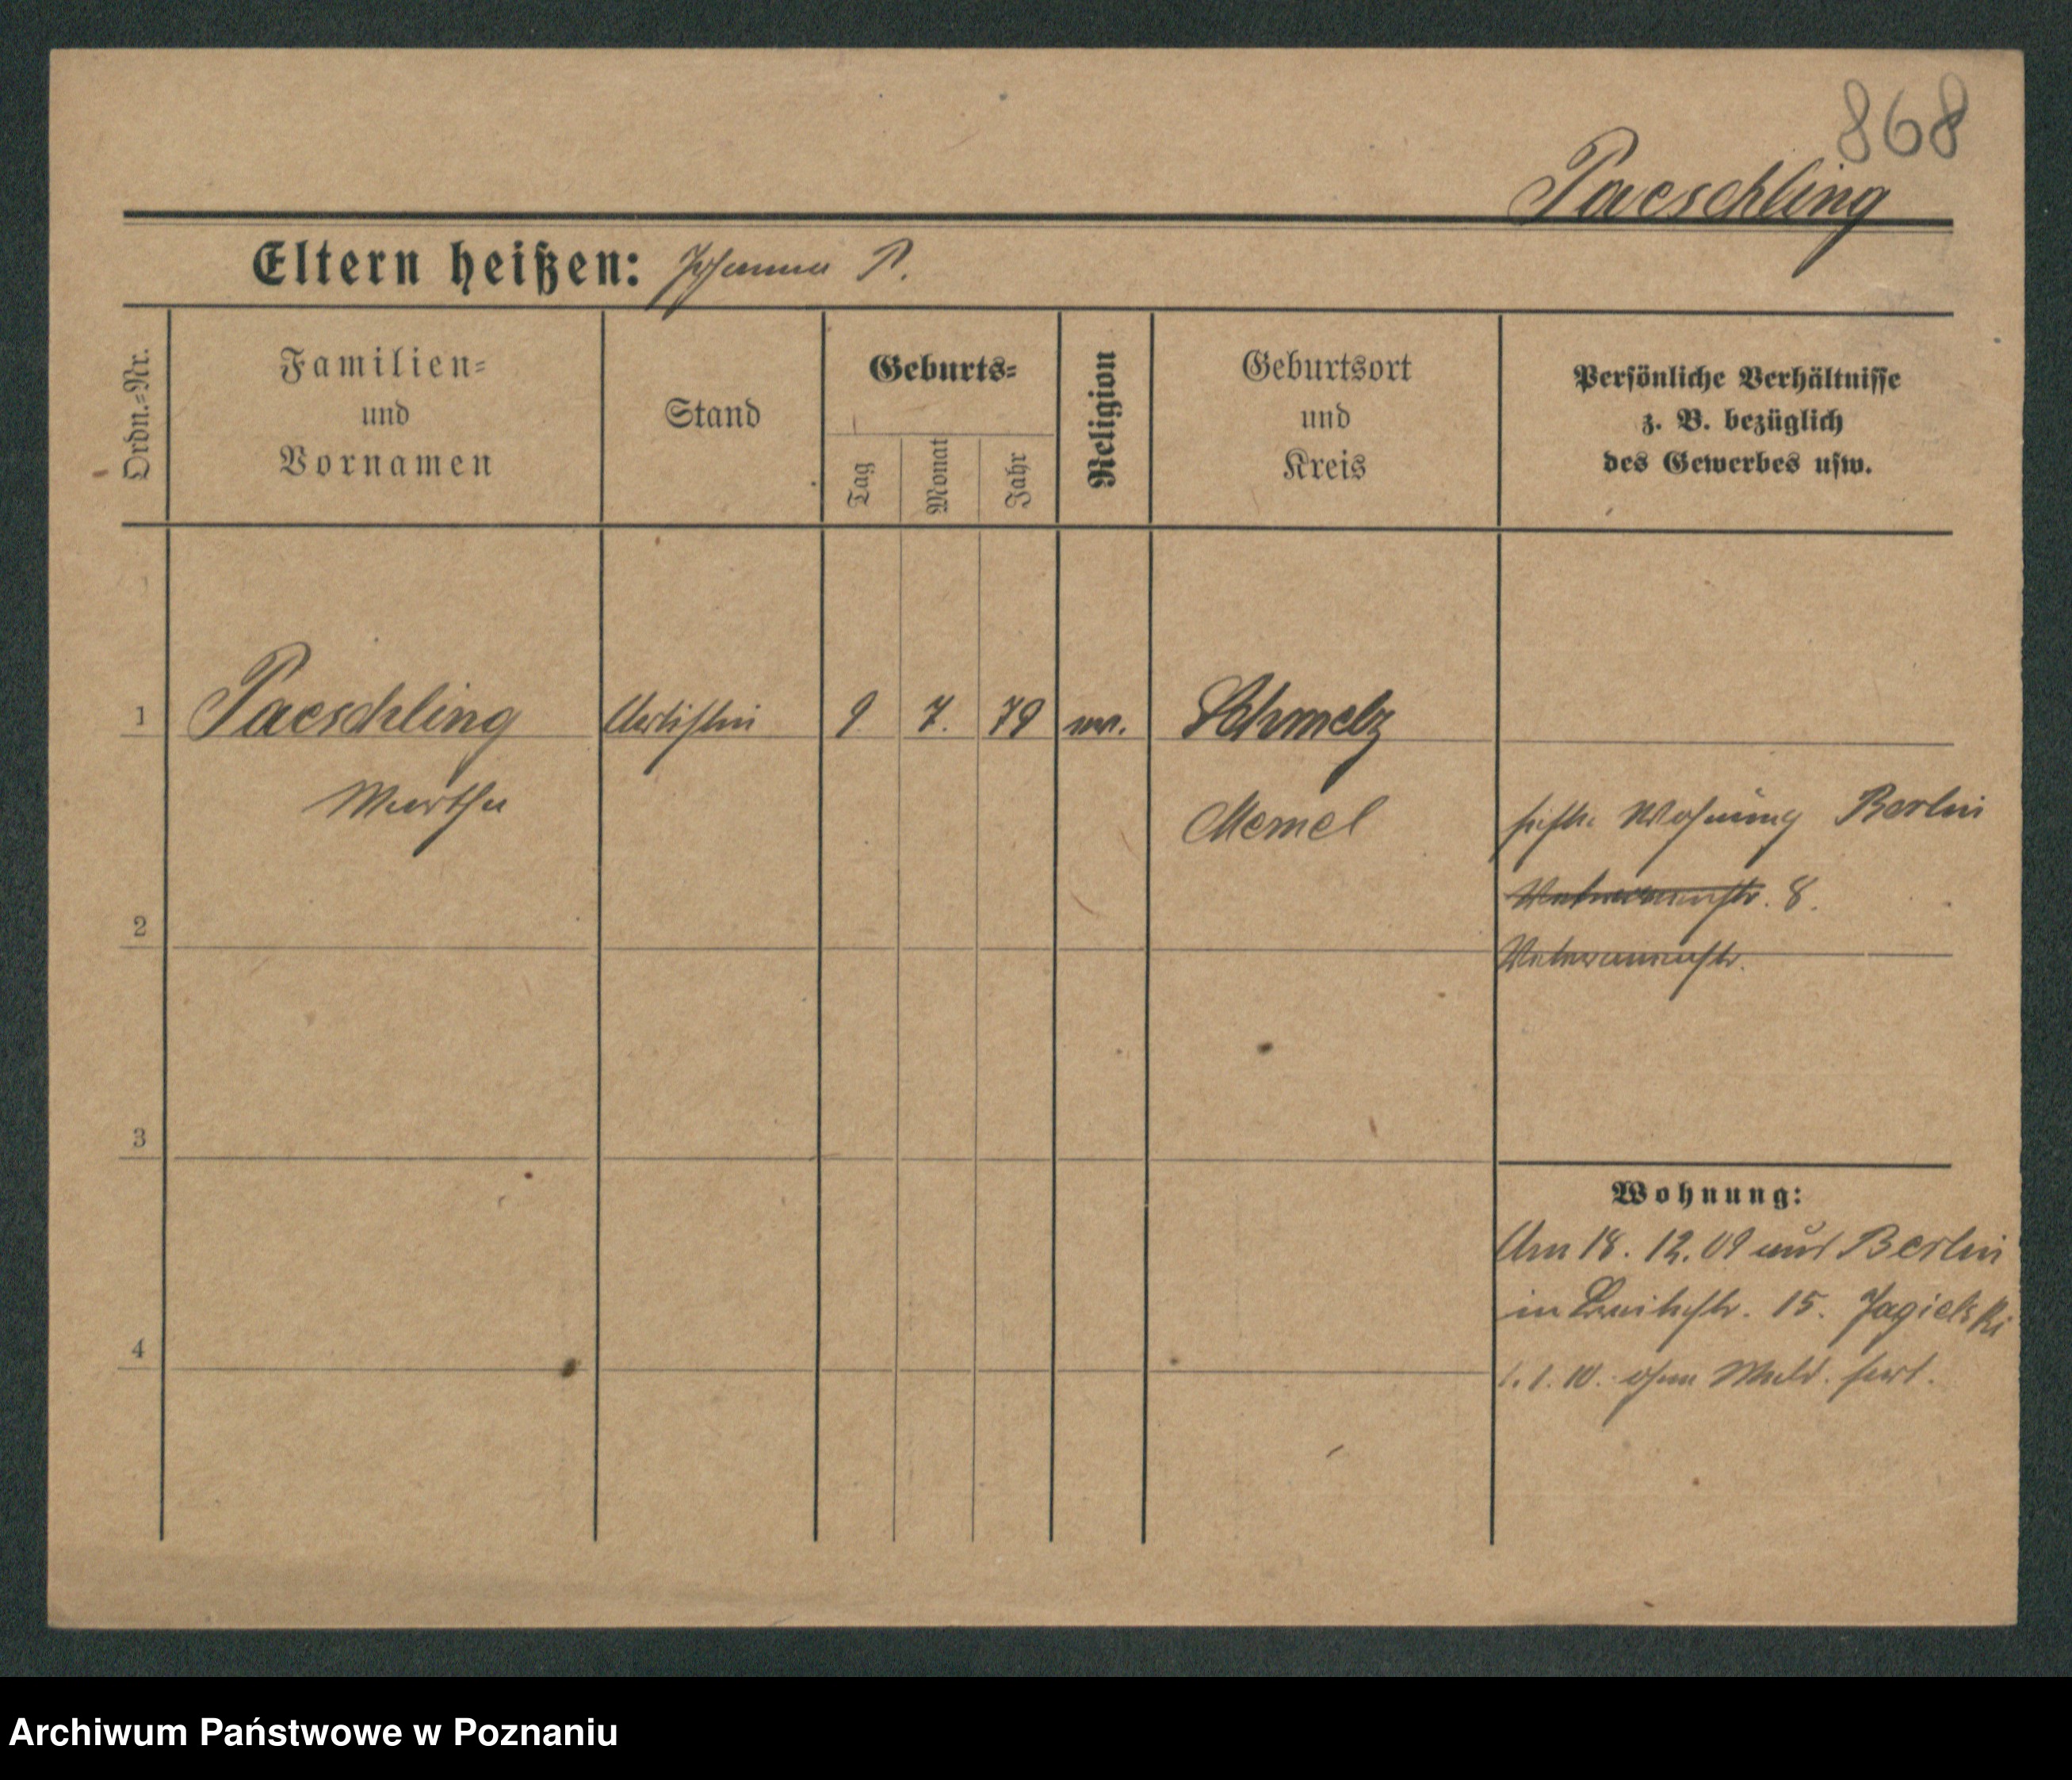 868
Paeschling
Eltern heißen: Johanna P.
Ordn.=Nr.
Familien=
und
Vornamen
Stand
Geburts=
Tag
Monat
Jahr
Religion
Geburtsort
und
Kreis
Persönliche Verhältnisse
z. B. bezüglich
des Gewerbes usw.
1 Paeschling Artistin 9. 7. 79 ev. Schmelz
Martha
Memel
feste Wohnung Berlin
8.
2
3
4
Wohnung:
Am 18. 12. 09 aus Berlin
in Breitestr. 15. Jagielski
1. 1. 10. ohne Meld. fort.
Archiwum Państwowe w Poznaniu